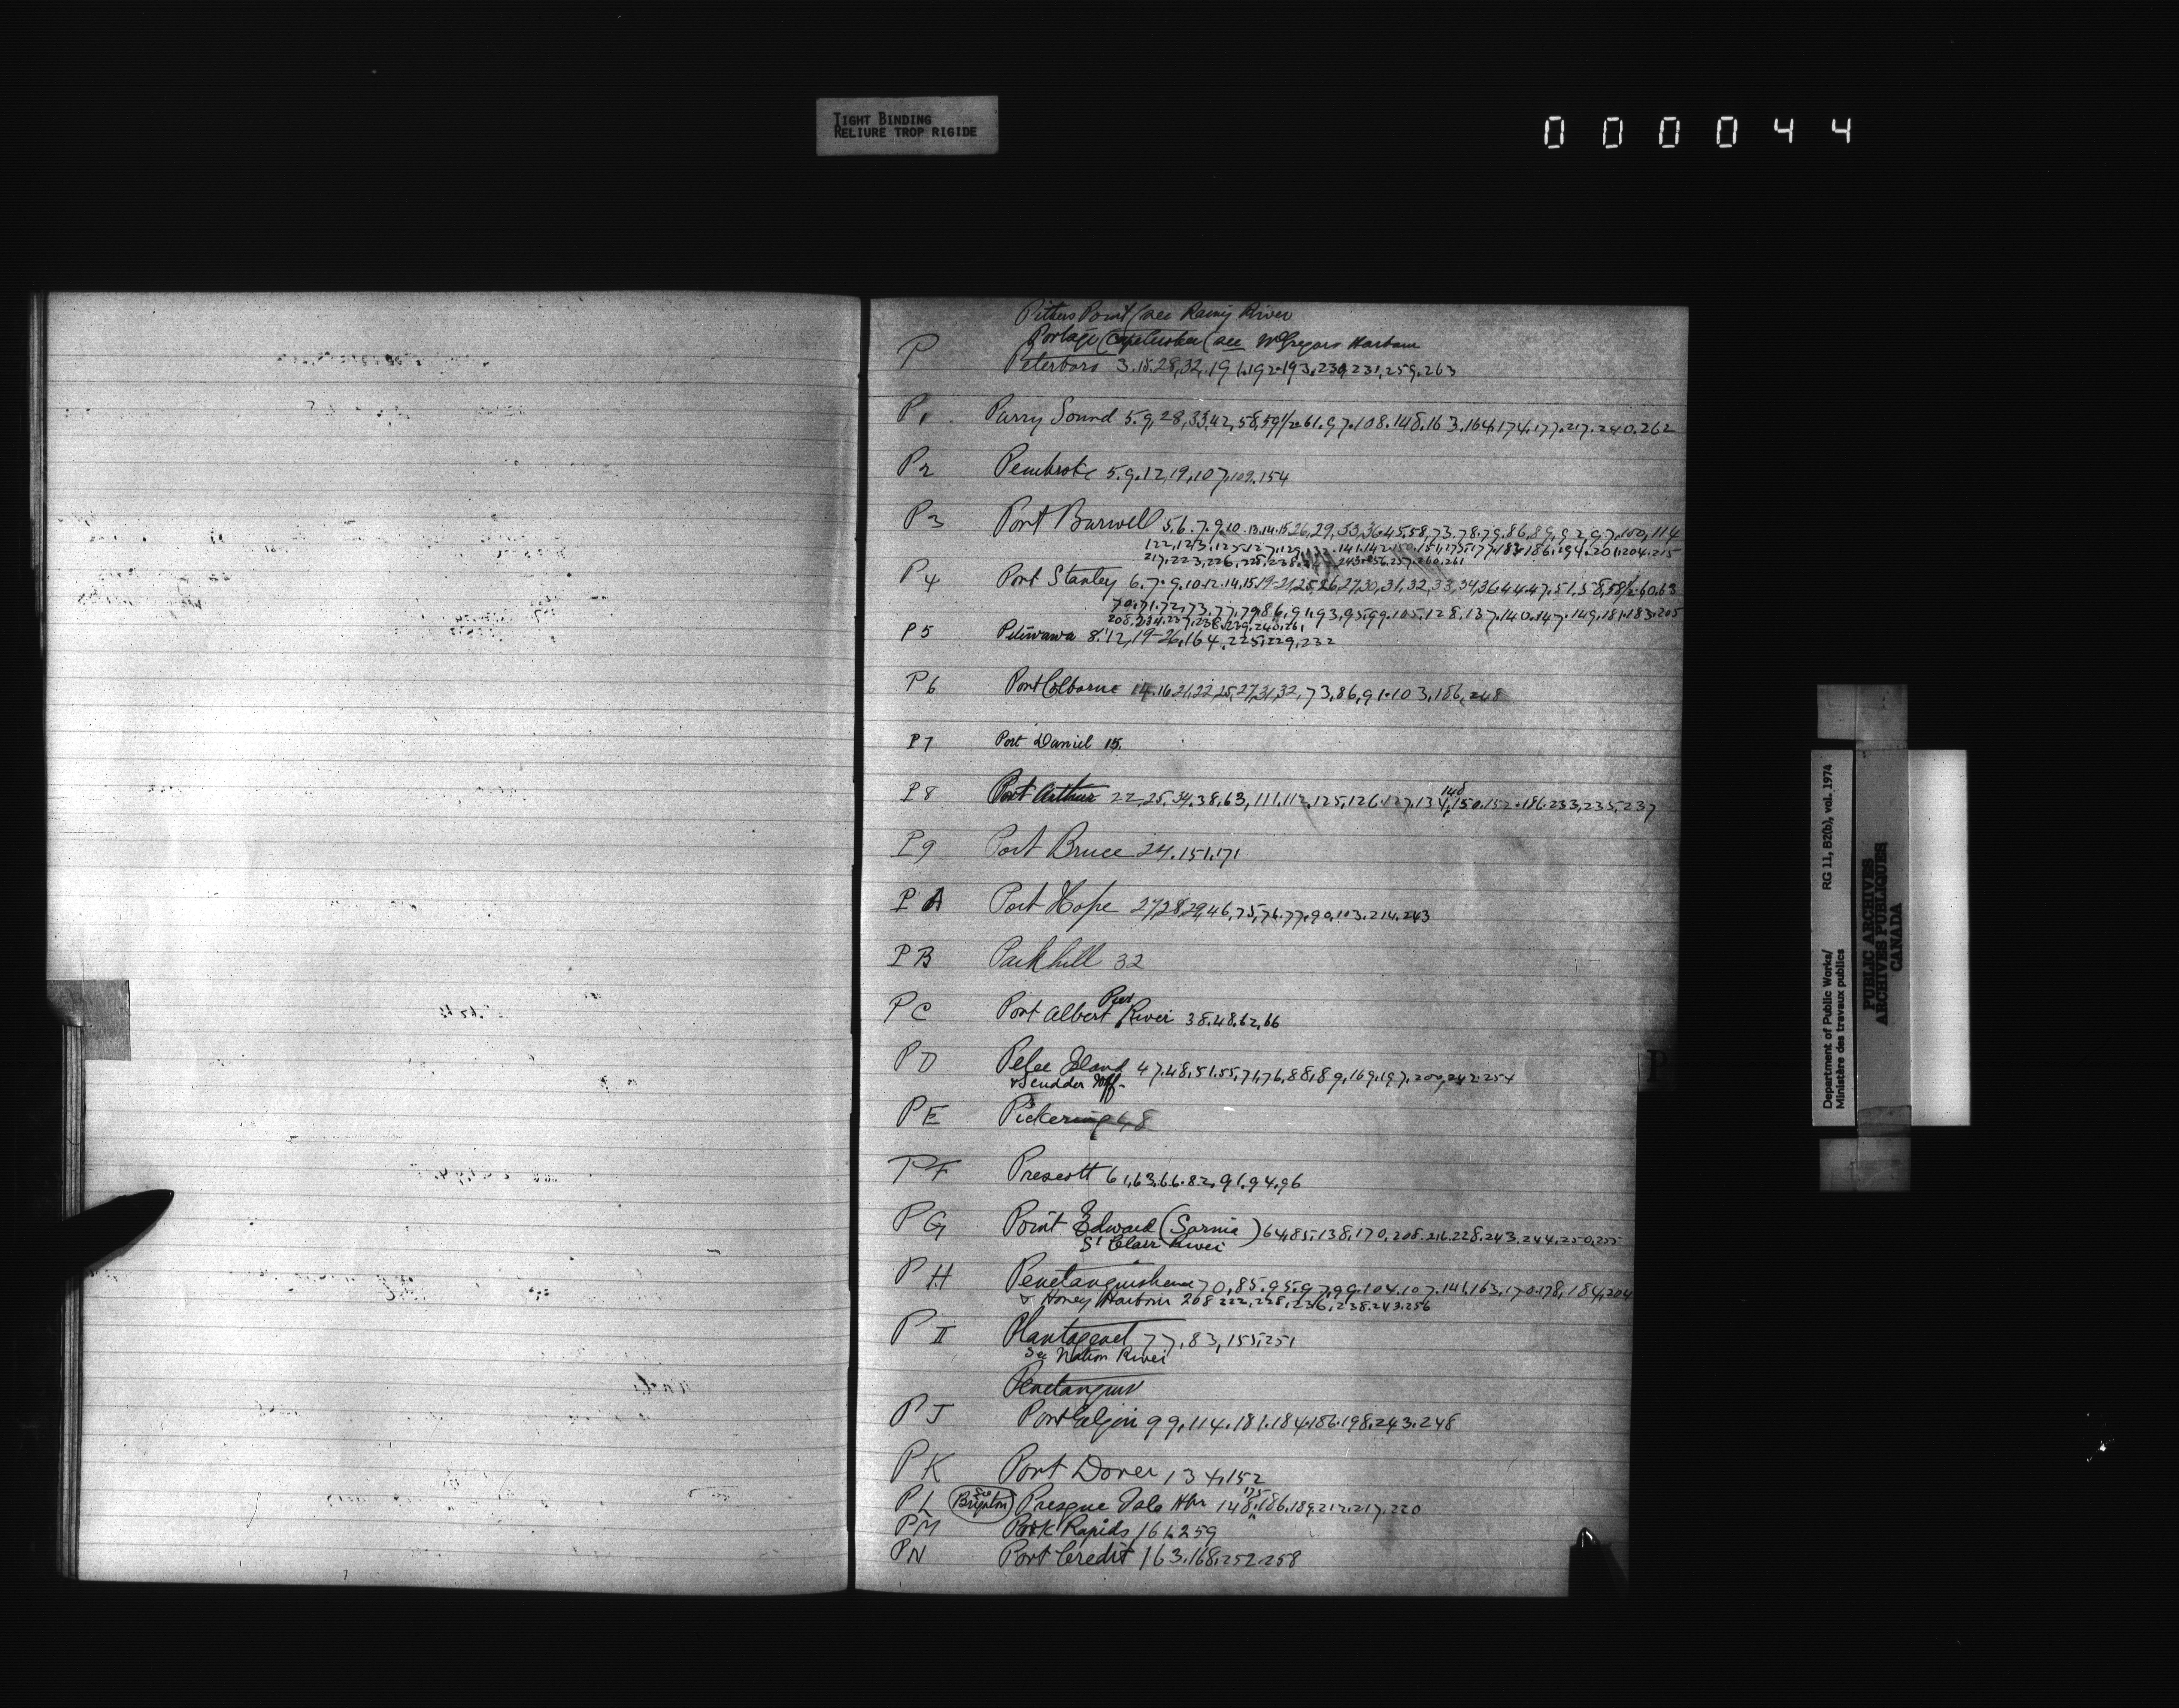 TIGHT BINDING
RELIURE TROP RIGIDE
000044
Pithers Point (see Rainy River
Portage (see McGregors Harbour
P Peterboro 3.18.28,32,191.192.193.230,231,259.263
P1 Parry Sound 5.9,28,33,42,58,59½.61.97.108.148.163.164,174.177.217.240.262
P2 Pembroke 5.9.12,19,107.109.154
P3 Port Burwell 5.6.7.9.10.13.14.15.26,29,33,36.45,58,73.78.79.86,89,92,97,100,114
P4 Port Stanley 6.7.9.10.12.14,15.19-21,25,26,27,30,31,32,33,34,36,44,47.51,58,58½.60.63
70.71.72,73.77.79,86,91,93,95,99.105.128.137.140.147.149.181.183.205
208.234.237,238.239.240.261
P5 Petewawa 8.12,19-26,164,225,229,232
P6 Port Colborne 14.16,21,22,25,27,31,32,73,86,91.103,186,248
P7 Port Daniel 15.
148
P8 Port Arthur 22,25,34,38,63,111,112,125,126.127,134,150.152.186.233,235,237
P9 Port Bruce 24.151.171
PA Port Hope 27,28,29,46,75,76.77.90,103.214.243
PB Parkhill 32
Pier
PC Port Albert River 38.48,62,66
PD Pelee Island 47.48,51.55,71,76,88,89,169.197.200,242.254
& Scudder Whf.
PE Pickering 48
PF Prescott 61,63,66.82,91,94,96
PG Point Edward (Sarnia) 64,85,138,170,208.216.228.243.244.250,255
St Clair River
PH Penetanguishene 70,85.95.97,99.104.107.141,163.170.178,184,204
& Honey Harbour 208 222,228,236,238.243.256
PII Plantagenet 77,83,155,251
See Nation River
Penetanguis
PJ Port Elgin 99.114.181.184.186.198.243.248
PK Port Dover 134,152
See 175
PL Brighton Presque Isle Hbr 148,186.189,212.217.220
PM Rapids 161.259
PN Port Credit 163.168.252.258
P
Department of Public Works/ RG 11, B2(b), vol. 1974
Ministère des travaux publics
PUBLIC ARCHIVES
ARCHIVES PUBLIQUES
CANADA